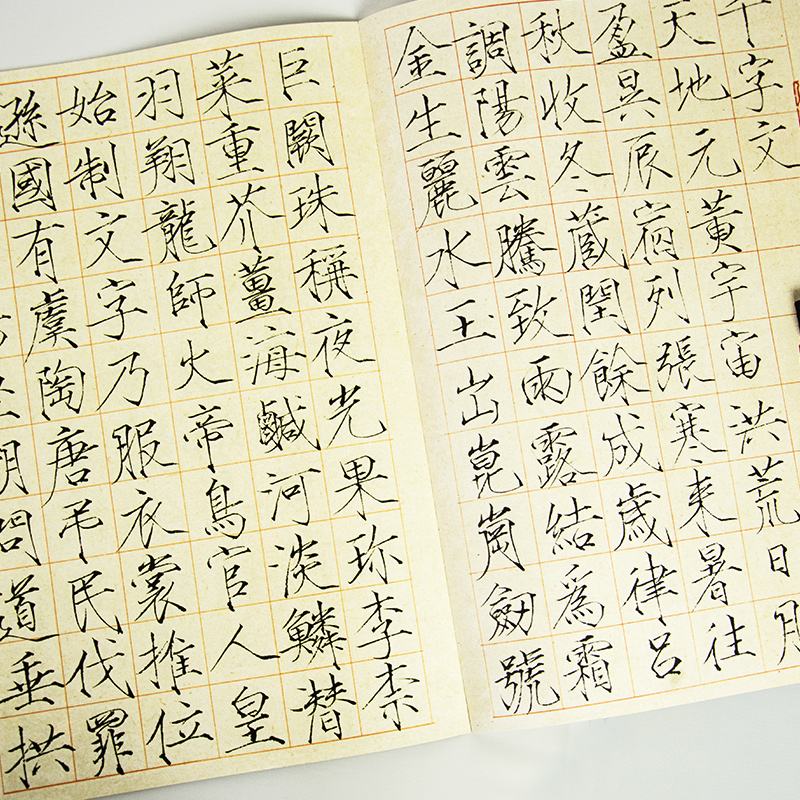 千字文
天地元黄宇宙洪荒日月
盈昃辰宿列張寒来暑往
秋收冬蔵閏餘成歳律吕
調陽雲騰致雨露結爲霜
金生麗水玉出崑崗劒號
巨闕珠稱夜光果珎李柰
菜重芥薑海鹹河淡鱗潜
羽翔龍師火帝鳥官人皇
始制文字乃服衣裳推位
遜國有虞陶唐吊民伐罪
朝問道垂拱